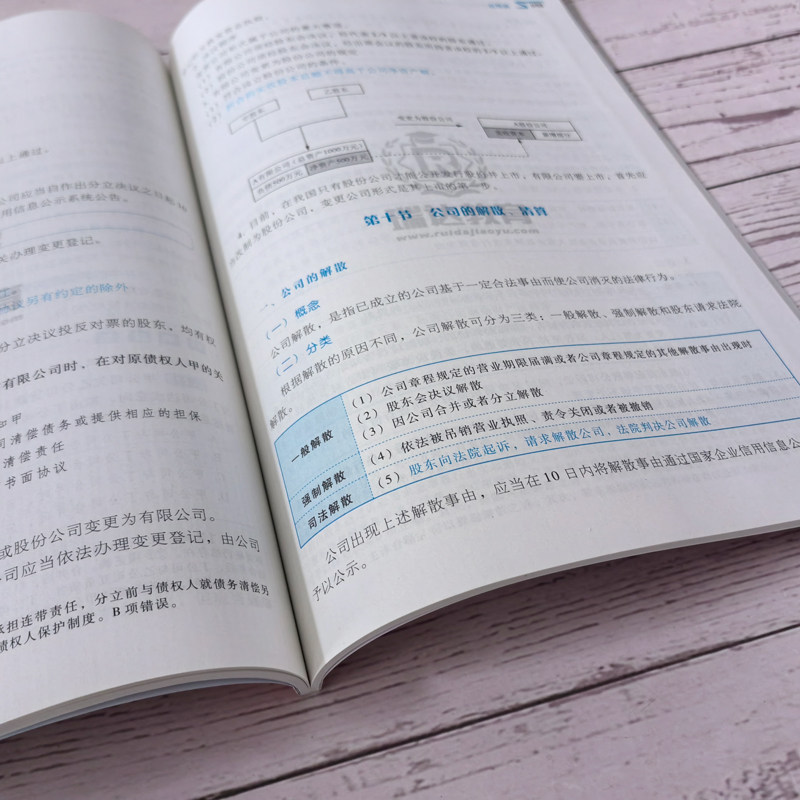 上通过。
公司应当自作出分立决议之日起10
用信息公示系统公告。
关办理变更登记。
另有约定的除外
分立决议投反对票的股东，均有权
有限公司时、在对原债权人甲的关
甲
司清偿债务或提供相应的担保
清偿责任
书面协议
或股份公司变更为有限公司。
司应当依法办理变更登记，由公司
承担连带责任，分立前与债权人就债务清偿另
债权人保护制度。B项错误。
乙股东
A有限公司（总资产1000万元）
负债500万元 净资产500万元
3. 目前，在我国只有股份公司才能公开发行股份并上市，有限公司要上市，首先应
当改制为股份公司，变更公司形式是其上市的第一步。
第十节 公司的解散、清算
www.ruidajiaoyu.com
一、公司的解散
（一）概念
公司解散，是指已成立的公司基于一定合法事由而使公司消灭的法律行为。
（二）分类
根据解散的原因不同，公司解散可分为三类：一般解散、强制解散和股东请求法院
解散。
一般解散
（1）公司章程规定的营业期限届满或者公司章程规定的其他解散事由出现时
（2）股东会决议解散
（3）因公司合并或者分立解散
强制解散
（4）依法被吊销营业执照、责令关闭或者被撤销
司法解散
（5）股东向法院起诉，请求解散公司，法院判决公司解散
公司出现上述解散事由，应当在10日内将解散事由通过国家企业信用信息公
予以公示。